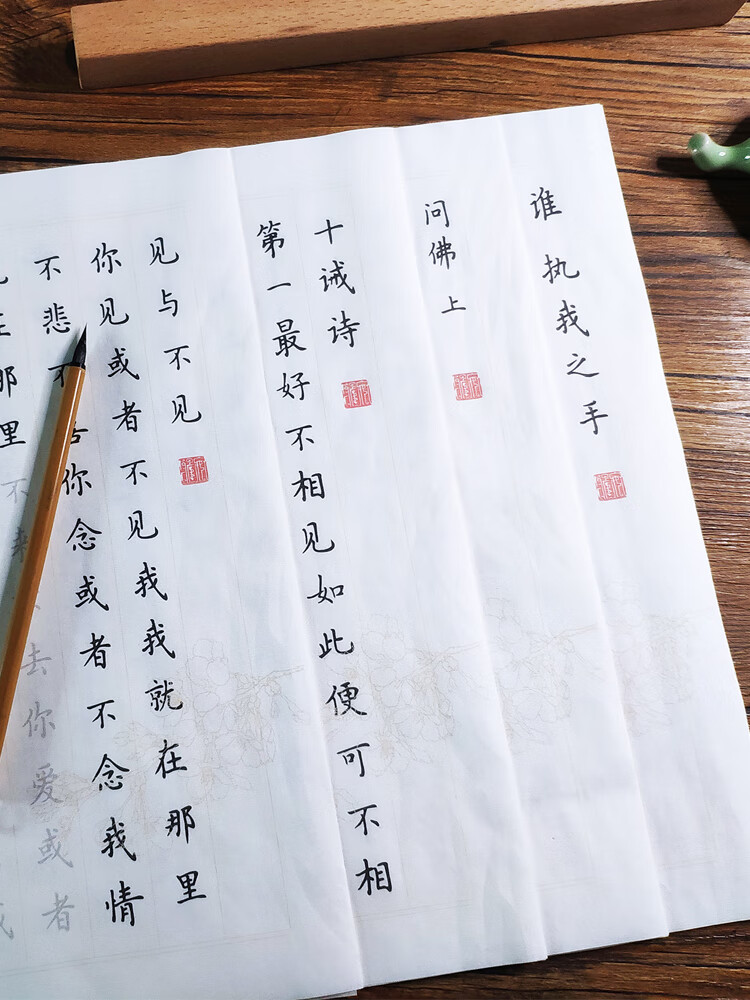 谁执我之手
问佛上
十诫诗
第一最好不相见如此便可不相
见与不见
你见或者不见我我就在那里
不悲不你念或者不念我情
在那里不来去你爱或者